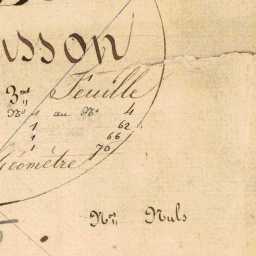 usson
3me Feuille
No 1 au No 4
1 62
1 66
1 70
Géomètre
Nos Nuls